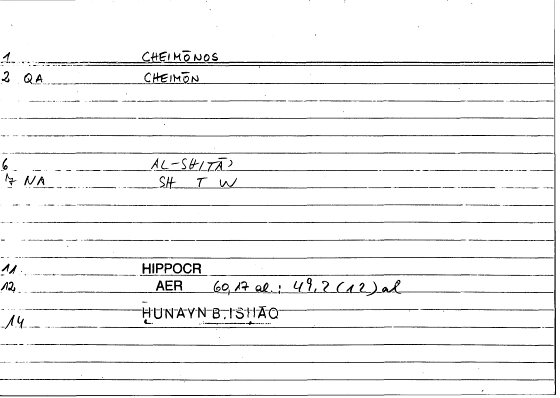 1 CHEIMŌNOS
2 QA CHEIMŌN
6 AL-SHITĀʾ
7 NA SH T W
11 HIPPOCR
12 AER 60,17 al.: 49,2 (12) al
14 ḤUNAYN B. ISḤĀQ